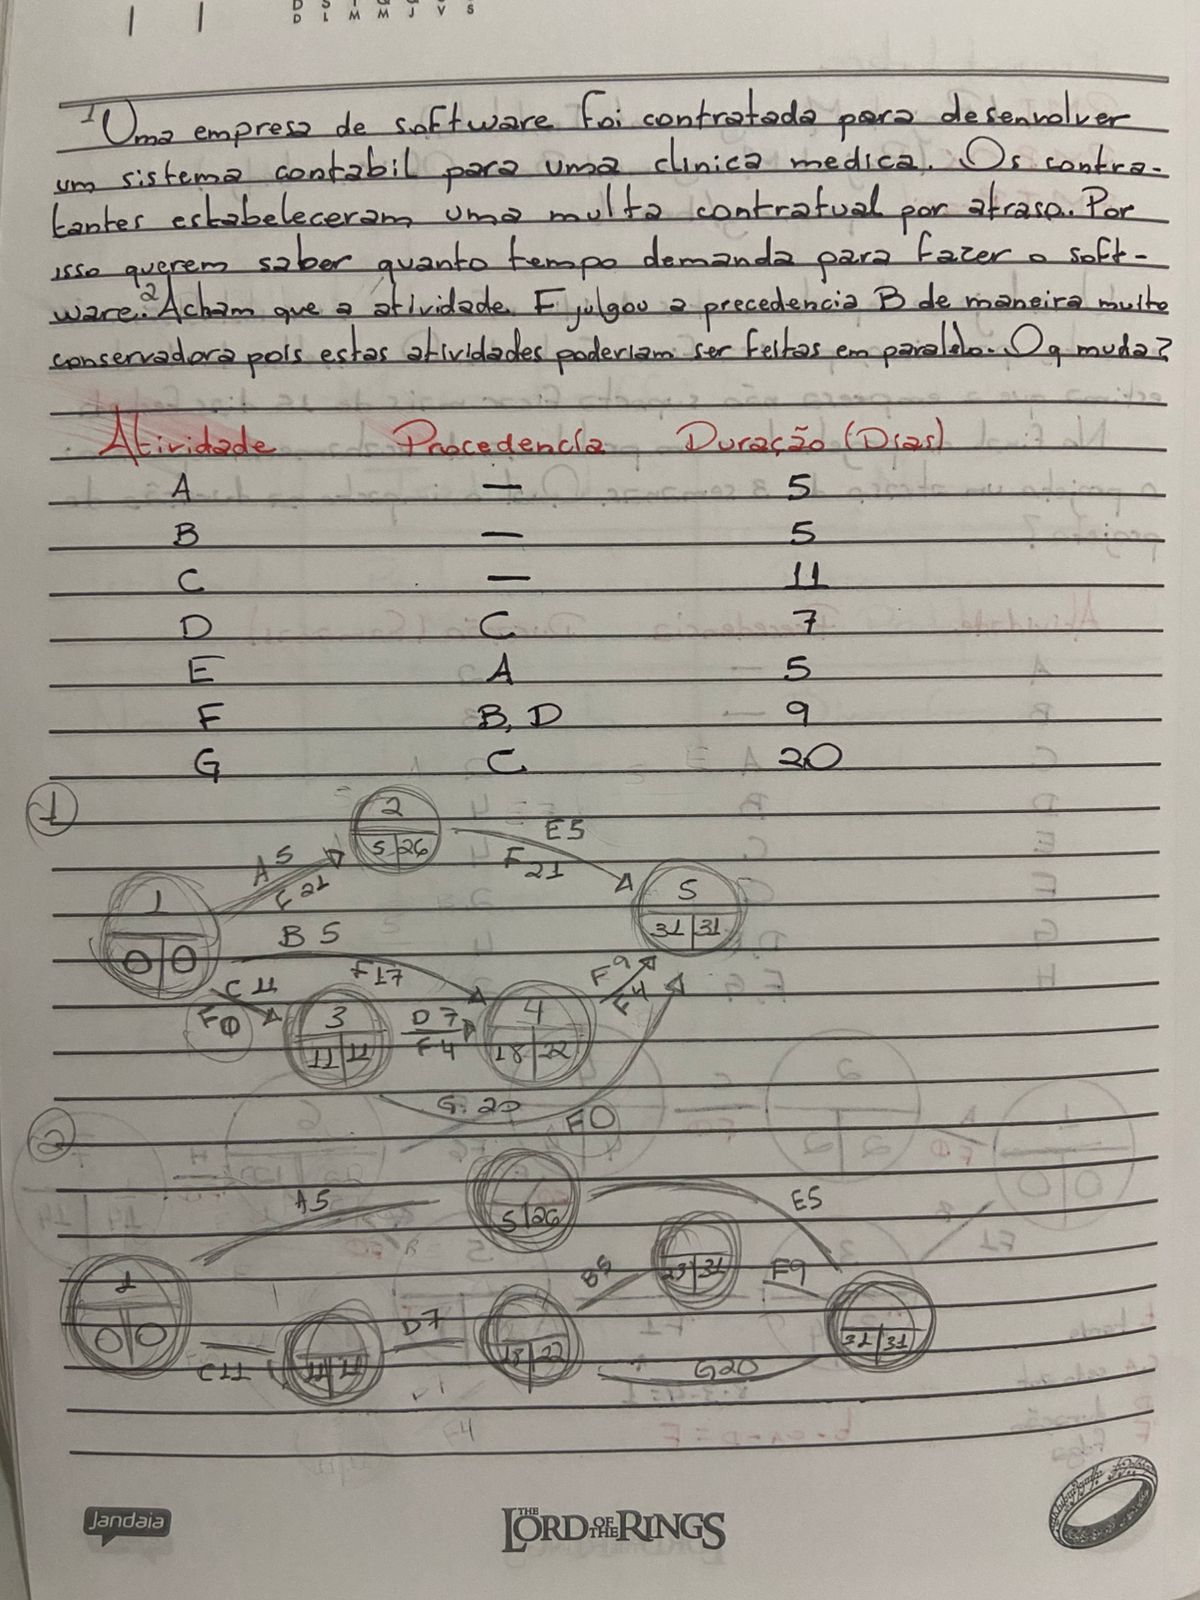 D S T Q Q S S
D L M M J V S
1 Uma empresa de software foi contratada para desenvolver
um sistema contabil para uma clinica medica. Os contra-
tantes estabeleceram uma multa contratual por atraso. Por
isso querem saber quanto tempo demanda para fazer o soft-
ware. 2 Acham que a atividade F julgou a precedencia B de maneira muito
conservadora pois estas atividades poderiam ser feitas em paralelo. O q muda?
Atividade Procedencia Duração (Dias)
A — 5
B — 5
C — 11
D C 7
E A 5
F B, D 9
G C 20
1
2
5 26
A 5
F 21
E5
F 21
1
0 0
5
31 31
B 5
F17
C 11
F0
3
11 11
D 7
F4
4
18 22
F 9
F4
G. 20
F0
2
A5
5 26
E5
1
0 0
C11
11 11
D7
18 22
23 31
F9
G20
31 31
Jandaia
THE LORD OF THE RINGS